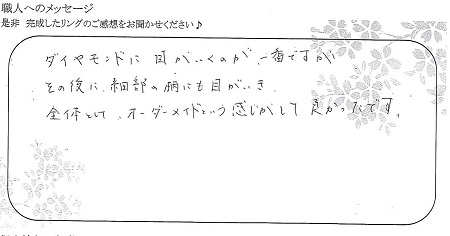 職人へのメッセージ
是非 完成したリングのご感想をお聞かせください♪
ダイヤモンドに目がいくのが一番ですが
その後に、細部の柄にも目がいき
全体として、オーダーメイドという感じがして良かったです。